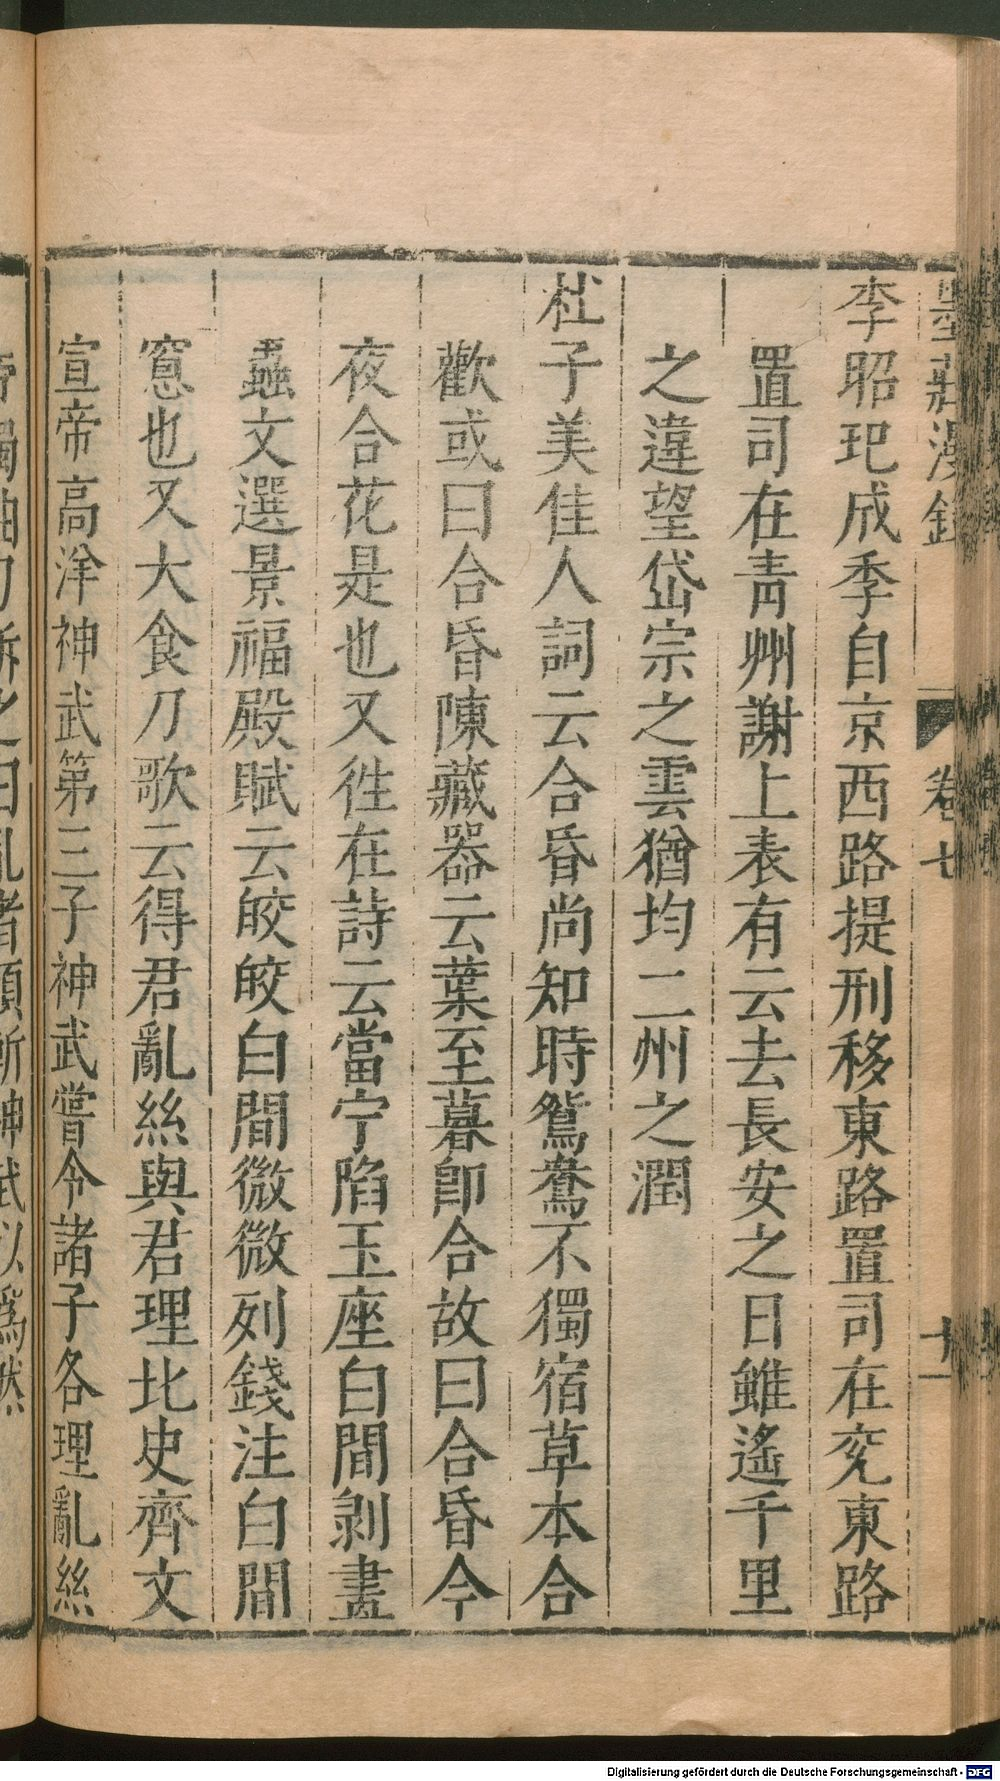 墨莊漫錄
卷七
十一
李昭玘成季自京西路提刑移東路置司在兖東路
置司在青州謝上表有云去長安之日雖遙千里
之違望岱宗之雲猶均二州之潤
杜子美佳人詞云合昏尚知時鴛鴦不獨宿草本合
歡或曰合昏陳藏器云葉至暮即合故曰合昏今
夜合花是也又徃在詩云當宁陷玉座白間剥畫
蟲文選景福殿賦云皎皎白間微微列錢注白間
窻也又大食刀歌云得君亂絲與君理北史齊文
宣帝高洋神武第三子神武嘗令諸子各理亂絲
帝獨抽刀斬之曰亂者須斬神武以為然
Digitalisierung gefördert durch die Deutsche Forschungsgemeinschaft - DFG